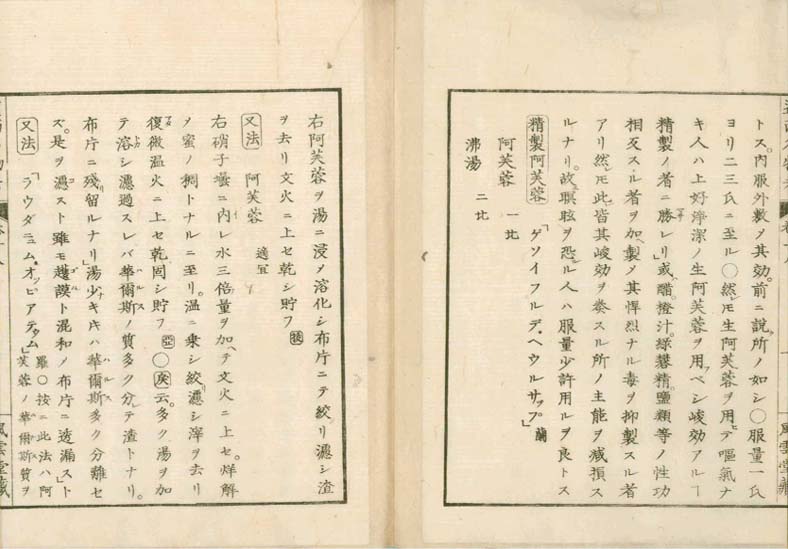 トス。内服外敷メ其効。前ニ說所ノ如シ〇服量一氏
ヨリ二三氏ニ至ル〇然レ𪜈生阿芙蓉ヲ用テ嘔氣ナ
キ人ハ上好淨潔ノ生阿芙蓉ヲ用ベシ峻効アルヿ
精製ノ者ニ勝レリ」或ハ醋。橙汁。綠礬精。鹽類等ノ性功
相反スル者ヲ加ヘ製メ其悍烈ナル毒ヲ抑製スル者
アリ然レ𪜈此皆其峻効ヲ奏スル所ノ主能ヲ減損ス
ルナリ。故ニ瞑眩ヲ恐ルヽ人ハ服量少許用ルヲ良トス
精製阿芙蓉 「ゲソイフルデ・ヘウルサップ」蘭
阿芙蓉 一比
沸湯 二比
右阿芙蓉ヲ湯ニ浸メ溶化シ布片ニテ絞リ濾シ渣
ヲ去リ文火ニ上セ乾シ貯フ
又法 阿芙蓉 適宜
右硝子壜ニ内レ水三倍量ヲ加ヘテ文火ニ上セ。烊解
メ蜜ノ稠トナルニ至リ。温ニ乗シ絞リ濾シ滓ヲ去リ
復微温火ニ上セ乾固シ貯フ 亞 〇 云。多ク湯ヲ加
テ溶シ濾過スレバ華爾斯ノ質多ク分テ渣トナリ。
布片ニ殘リ留ルナリ」湯少ナキ𪜈ハ華爾斯多ク分離セ
ズ。是ヲ濾スト雖モ越謨ト混和ノ布片ニ透漏スト
又法 「ラウダニュム。オッピアテュム」 羅〇按ニ此法ハ阿
芙蓉ノ華爾斯質ヲ
風雲堂藏
風雲堂藏